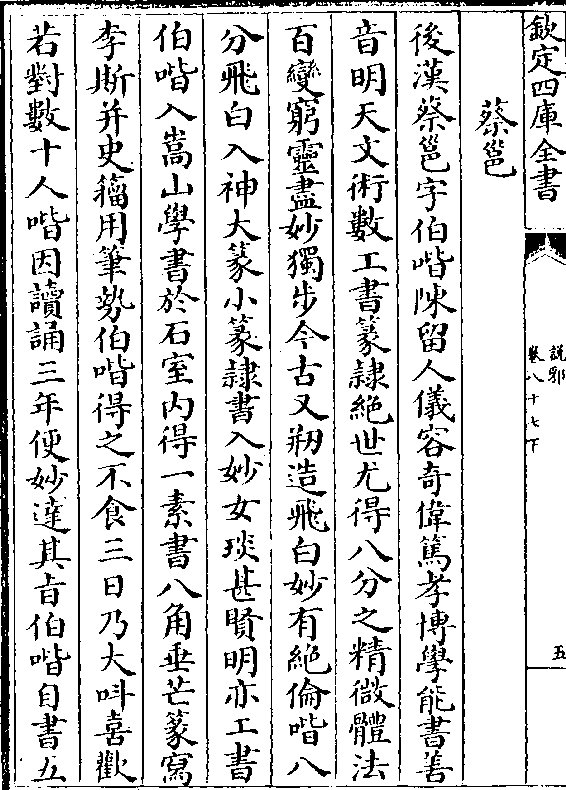 欽定四庫全書
說郛
卷八十七下
五
蔡邕
後漢蔡邕字伯喈陳留人儀容奇偉篤孝博學能書善
音明天文術數工書篆隸絶世尤得八分之精微體法
百變窮靈盡妙獨步今古又剏造飛白妙有絶倫喈八
分飛白入神大篆小篆隸書入妙女琰甚賢明亦工書
伯喈入嵩山學書於石室内得一素書八角垂芒篆寫
李斯并史籀用筆勢伯喈得之不食三日乃大呌喜歡
若對數十人喈因讀誦三年便妙達其旨伯喈自書五